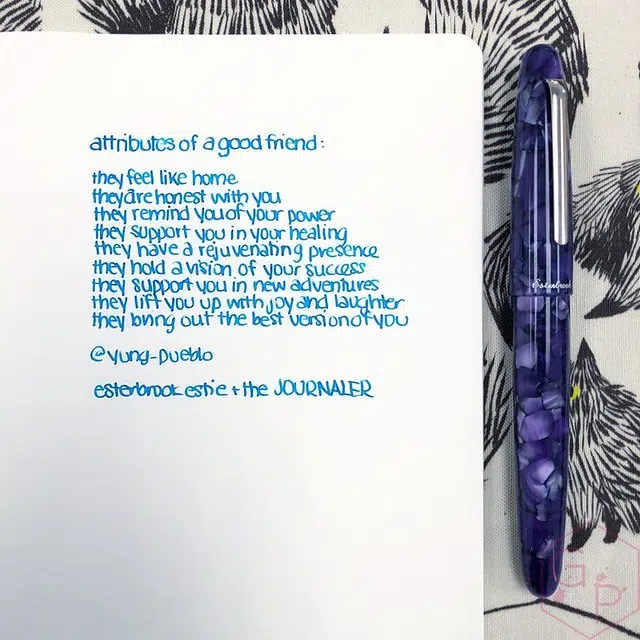 attributes of a good friend:
they feel like home
they are honest with you
they remind you of your power
they support you in your healing
they have a rejuvenating presence
they hold a vision of your success
they support you in new adventures
they lift you up with joy and laughter
they bring out the best version of you
@yung-pueblo
esterbrook estie + the JOURNALER
Esterbrook
G P